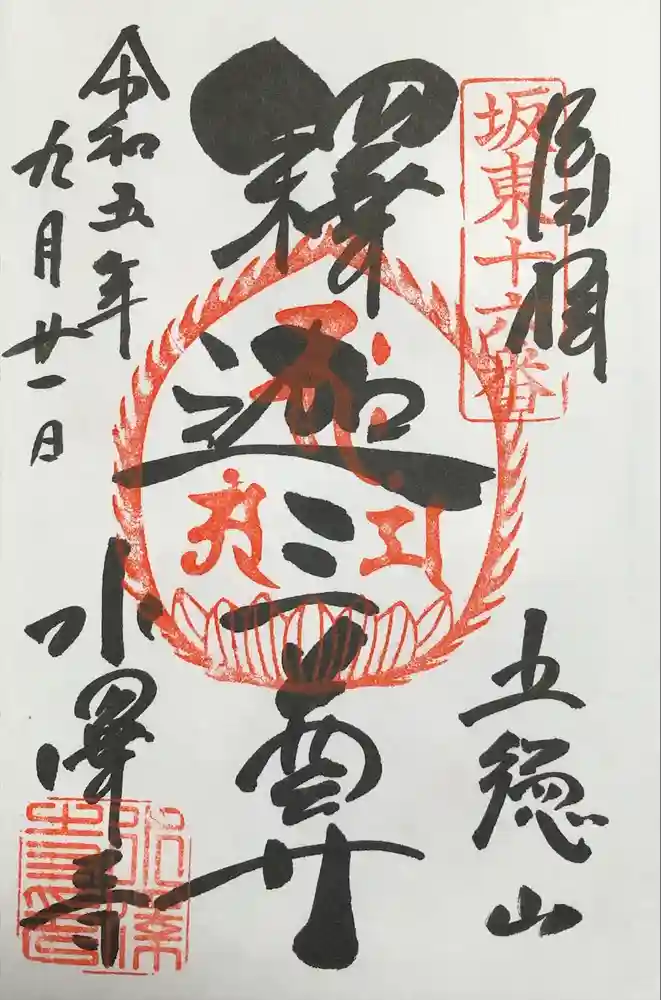 坂東十六番
五徳山
釋迦三尊
水澤寺
令和五年
九月廿一日